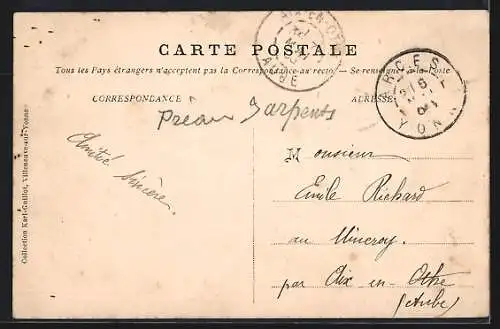 CARTE POSTALE
Tous les Pays étrangers n'acceptent pas la Correspondance au recto. — Se renseigner à la Poste
CORRESPONDANCE
ADRESSE
Préau Sarpents
Amitié Sincère.
Monsieur
Emile Richard
au Mineroy.
par Aix en Othe
(Aube)
Collection Karl-Guillot, Villeneuve-sur-Yonne
AIX-EN-OTHE
AUBE
ARCES
YONNE